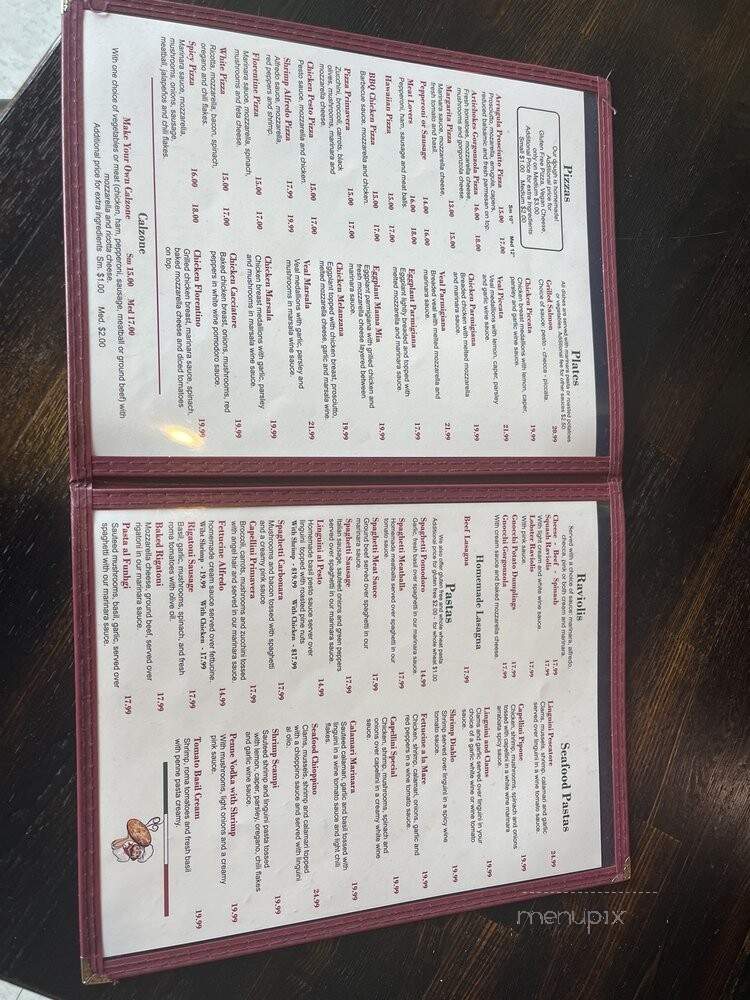 Pizzas
Our dough is homemade!
Additional price for
Gluten Free Pizza, Vegan Cheese,
only on Medium $3.00
Additional Price for extra Ingredients
Small $1.00 Medium $2.00
Sm 10" Med 12"
Arragula Prosciutto Pizza 15.00 17.00
Prosciutto, mozzarella, arrugula, capers,
reduced balsamic and fresh parmesan on top.
Artichokes Gorgonzola Pizza 16.00 18.00
Fresh tomatoes, mozzarella cheese,
mushrooms and gorgonzola cheese.
Margarita Pizza 13.00 15.00
Marinara sauce, mozzarella cheese,
fresh tomato and basil.
Pepperoni or Sausage 14.00 16.00
Meat Lovers 16.00 18.00
Pepperoni, ham, sausage and meat balls.
Hawaiian Pizza 15.00 17.00
BBQ Chicken Pizza 15.00 17.00
Barbecue sauce, mozzarella and chicken.
Pizza Primavera 15.00 17.00
Zucchini, broccoli, carrots, black
olives, mushrooms, marinara and
mozzarella cheese.
Chicken Pesto Pizza 15.00 17.00
Pesto sauce, mozzarella and chicken.
Shrimp Alfredo Pizza 17.99 19.99
Alfredo sauce, mozzarella,
red peppers and shrimp.
Florentine Pizza 15.00 17.00
Marinara sauce, mozzarella, spinach,
mushrooms and feta cheese.
White Pizza 15.00 17.00
Ricotta, mozzarella, bacon, spinach,
oregano and chili flakes.
Spicy Pizza 16.00 18.00
Marinara sauce, mozzarella,
mushrooms, onions, sausage,
meatball, jalapeños and chili flakes.
Plates
All dishes are served with marinara pasta or roasted potatoes
or vegetables - additional fee for other sauces $2.50
Grilled Salmon 20.99
Choice of sauce: pesto - checca - piccata.
Chicken Picatta 19.99
Chicken breast medallions with lemon, caper,
parsley and garlic wine sauce.
Veal Piccata 21.99
Veal medallions with lemon, caper, parsley
and garlic wine sauce.
Chicken Parmigiana 19.99
Breaded chicken with melted mozzarella
and marinara sauce.
Veal Parmigiana 21.99
Breaded veal with melted mozzarella and
marinara sauce.
Eggplant Parmigiana 17.99
Eggplant lightly breaded and topped with
melted mozzarella and marinara sauce.
Eggplant Mama Mia 19.99
Eggplant parmigiana with grilled chicken and
fresh mozzarella cheese layered between
marinara sauce.
Chicken Melanzana 19.99
Eggplant topped with chicken breast, prosciutto,
melted mozzarella cheese, garlic and marsala wine.
Veal Marsala 21.99
Veal medallions with garlic, parsley and
mushrooms in marsala wine sauce.
Chicken Marsala 19.99
Chicken breast medallions with garlic, parsley
and mushrooms in marsala wine sauce.
Chicken Cacciatore 19.99
Baked chicken breast, onions, mushrooms, red
peppers in white wine pomodoro sauce.
Chicken Florentino 19.99
Grilled chicken breast, marinara sauce, spinach,
baked mozzarella cheese and diced tomatoes
on top.
Calzone
Make Your Own Calzone Sm 15.00 Med 17.00
With one choice of vegetables or meat (chicken, ham, pepperoni, sausage, meatball or ground beef) with
mozzarella and ricotta cheese.
Additional price for extra ingredients Sm. $1.00 Med. $2.00
Raviolis
Served with a choice of sauce: marinara, alfredo,
checca, pink or both cream and marinara.
Cheese - Beef - Spinash 17.99
Squash Raviolis 17.99
With light cream and white wine sauce.
Lobster Raviolis 17.99
With pink sauce.
Gnocchi Potato Dumplings 17.99
Gnocchi Gorgonzola 17.99
With cream sauce and baked mozzarella cheese.
Homemade Lasagna
Beef Lasagna 17.99
Pastas
We also offer gluten free and whole wheat pasta
Additional price for gluten free $2.00 - for whole wheat $1.00
Spaghetti Pomodoro 14.99
Garlic, fresh basil over spaghetti in our marinara sauce.
Spaghetti Meatballs 17.99
Homemade meatballs served over spaghetti in our
tomato sauce.
Spaghetti Meat Sauce 17.99
Ground beef served over spaghetti in our
marinara sauce.
Spaghetti Sausage 17.99
Italian sausage, sauteed onions and green peppers
served over spaghetti in our marinara sauce.
Linguini al Pesto 14.99
Homemade basil pesto sauce server over
linguini topped with roasted pine nuts
With Shrimp - $19.99 With Chicken - $17.99
Spaghetti Carbonara 17.99
Mushrooms and bacon tossed with spaghetti
and a creamy pink sauce
Capellini Primavera 17.99
Broccoli, carrots, mushrooms and zucchini tossed
with angel hair and served in our marinara sauce.
Fettucine Alfredo 14.99
homemade cream sauce served over fettucine.
Wiht Shrimp - 19.99 With Chicken - 17.99
Rigattoni Sausage 17.99
Basil, garlic, mushrooms, spinach, and fresh
roma tomatoes with olive oil.
Baked Rigattoni 17.99
Mozzarella cheese, ground beef, served over
rigatoni in our marinara sauce.
Pasta al Funhgi 17.99
Sauteed mushrooms, basil, garlic, served over
spaghetti with our marinara sauce.
Seafood Pastas
Linguini Pescatore 24.99
Clams, mussels, shrimp, calamari and garlic,
served over linguini in a wine tomato sauce.
Capellini Pipone 19.99
Chicken, shrimp, mushrooms, spinach and onions
tossed with capellini in a white wine marinara
arrabiata spicy sauce.
Linguini and Clams 19.99
Clams and garlic, served over linguini in your
choice of a garlic white wine or wine tomato
sauce.
Shrimp Diablo 19.99
Shrimp served over linguini in a spicy wine
tomato sauce.
Fettucine a la Mare 19.99
Chicken, shrimp, calamari, onions, garlic and
red peppers in a wine tomato sauce.
Capellini Special 19.99
Chicken, shrimp, mushrooms, spinach and
onions over capellini in a creamy white wino
sauce.
Calamari Marinara 19.99
Sauteed calamari, garlic and basil tossed with
linguini in a wine tomato sauce and light chili
flakes.
Seafood Chioppino 24.99
Clams, mussels, shrimp and calamari topped
with a choppino sauce and served with linguini
al olio.
Shrimp Scampi 19.99
Sauteed shrimp and linguini pasta tossed
with lemon, caper, parsley, oregano, chili flakes
and garlic wine sauce.
Penne Vodka with Shrimp 19.99
With mushrooms, light onions and a creamy
pink sauce.
Tomato Basil Cream 19.99
Shrimp, roma tomatoes and fresh basil
with penne pasta creamy.
menupix